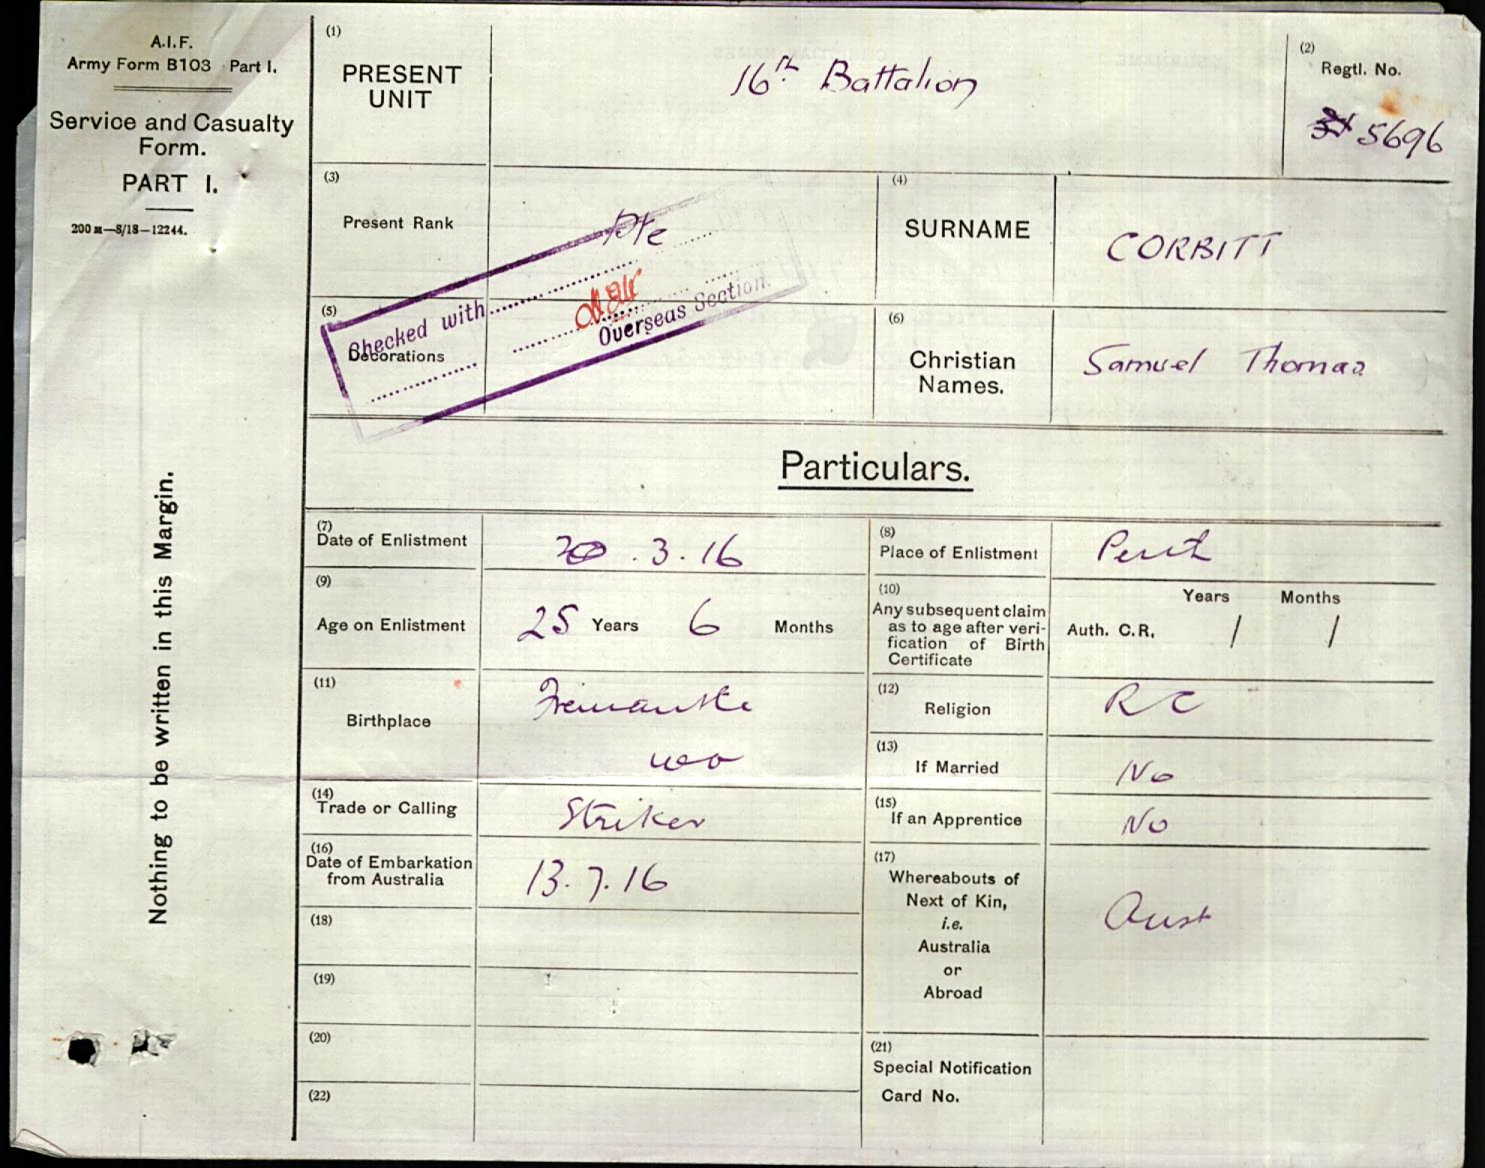 A.I.F.
Army Form B103 Part I.
Service and Casualty
Form.
PART I.
200 m—8/18—12244.
Nothing to be written in this Margin.
(1)
PRESENT
UNIT
16th Battalion
(2)
Regtl. No.
5696
(3)
Present Rank
Pte
(4)
SURNAME
CORBITT
(5)
Decorations
Checked with
Overseas Section.
(6)
Christian
Names.
Samuel Thomas
Particulars.
(7)
Date of Enlistment
20.3.16
(8)
Place of Enlistment
Perth
(9)
Age on Enlistment
25 Years 6 Months
(10)
Any subsequent claim
as to age after veri-
fication of Birth
Certificate
Years Months
Auth. C.R. / /
(11)
Birthplace
Fremantle
WA
(12)
Religion
RC
(13)
If Married
No
(14)
Trade or Calling
Striker
(15)
If an Apprentice
No
(16)
Date of Embarkation
from Australia
13.7.16
(17)
Whereabouts of
Next of Kin,
i.e.
Australia
or
Abroad
Aust
(18)
(19)
(20)
(21)
Special Notification
Card No.
(22)